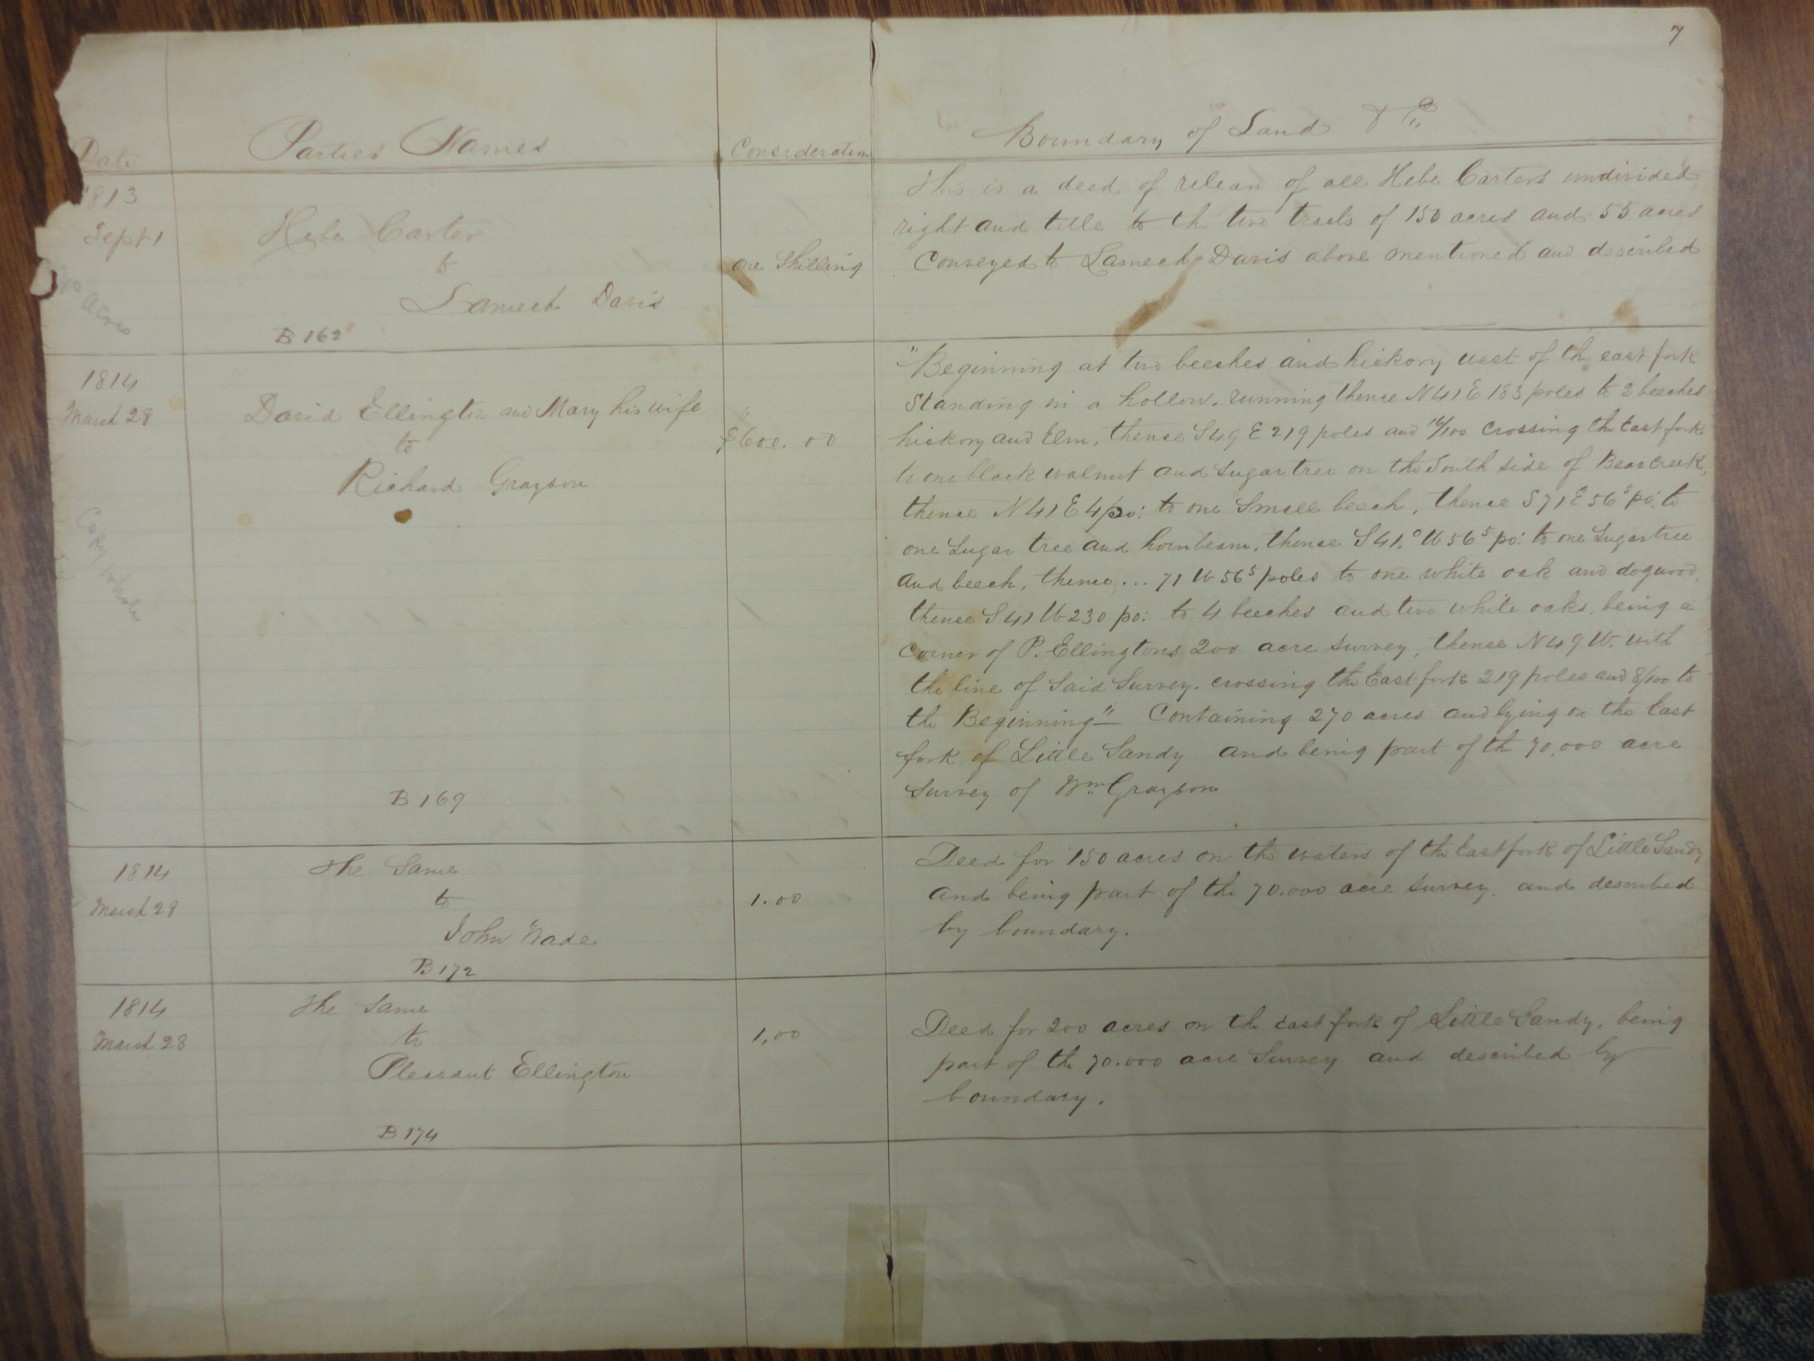 7
Date
Parties Names
Consideration
Boundary of Land &c
1813
Sept 1
acres
Hebe Carter
to
Lamech Davis
B 162
one Shilling
This is a deed of releas of all Hebe Carters undivided
right and title to th two tracts of 150 acres and 55 acres
Conveyed to Lamech Davis above mentioned and described
1814
March 28
Copy whole
David Ellington and Mary his wife
to
Richard Grayson
B 169
$600.00
"Beginning at two beeches and hickory west of the east fork
Standing in a hollow. running thence N 41 E 183 poles to 2 beeches
hickory and Elm, thence S 49 E 219 poles and 16/100 crossing the East fork
to one black walnut and Sugar tree on the South side of Bear Creek,
thence N 41 E po: to one Small beech, thence S 71 E 56⁵ po: to
one Sugar tree and hornbeam, thence S 41° W 56⁵ po: to one Sugartree
and beech, thence ... 71 W 56⁵ poles to one white oak and dogwood,
thence S 41 W 230 po: to 4 beeches and two white oaks, being a
corner of P. Ellingtons 200 acre survey, thence N 49 W. with
the line of Said Survey. crossing the East fork 219 poles and 8/100 to
the Beginning" Containing 270 acres and lying on the East
fork of Little Sandy and being part of the 70.000 acre
Survey of Wm Grayson
1814
March 28
The Same
to
John Wade
B 172
1.00
Deed for 150 acres on the waters of the East fork of Little Sandy
and being part of the 70.000 acre Survey. and described
by boundary.
1814
March 28
The Same
to
Pleasant Ellington
B 174
1,00
Deed for 200 acres on the East fork of Little Sandy, being
part of th 70.000 acre Survey and described by
boundary.